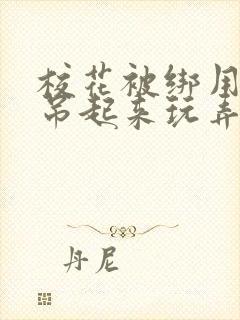 校花被绑用
吊起来玩弄
丹尼